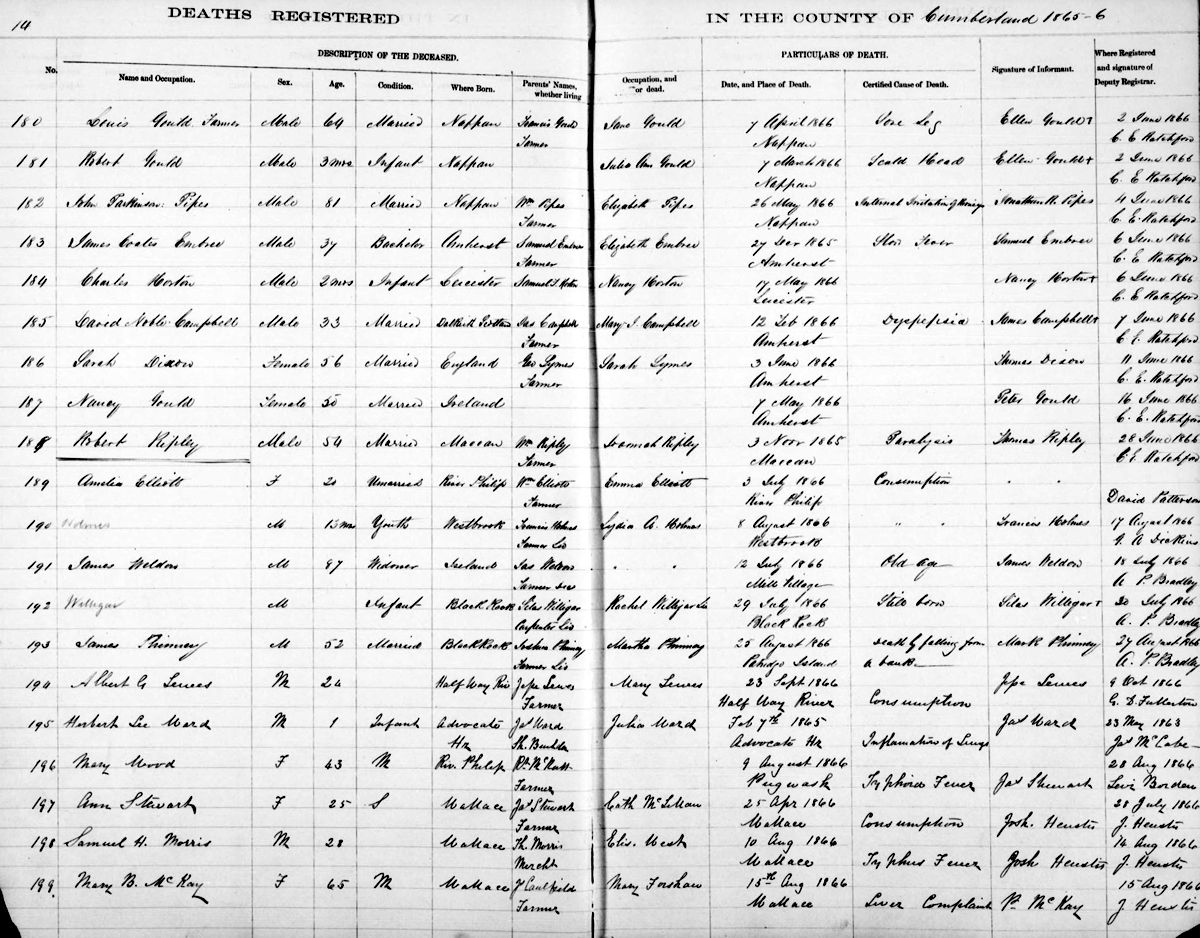 14
DEATHS REGISTERED IN THE COUNTY OF Cumberland 1865-6
DESCRIPTION OF THE DECEASED. PARTICULARS OF DEATH.
No. Name and Occupation. Sex. Age. Condition. Where Born. Parents' Names, whether living Occupation, and or dead. Date, and Place of Death. Certified Cause of Death. Signature of Informant. Where Registered and signature of Deputy Registrar.
180 Lewis Gould Farmer Male 64 Married Nappan Francis Gould Jane Gould 7 April 1866 Sore Leg Ellen Gould+ 2 June 1866
Farmer Nappan C. E. Ratchford
181 Robert Gould Male 3 mos Infant Nappan Julia Ann Gould 7 March 1866 Scald Head Ellen Gould+ 2 June 1866
Nappan C. E. Ratchford
182 John Parkinson Pipes Male 81 Married Nappan Wm Pipes Elizabeth Pipes 26 May 1866 Internal Irritation Jonathan R. Pipes 4 June 1866
Farmer Nappan C. E. Ratchford
183 James Coates Embree Male 37 Bachelor Amherst Samuel Embree Elizabeth Embree 27 Decr 1865 Slow Fever Samuel Embree 6 June 1866
Farmer Amherst C. E. Ratchford
184 Charles Horton Male 2 mos Infant Leicester Samuel Horton Nancy Horton 17 May 1866 Nancy Horton+ 6 June 1866
Leicester C. E. Ratchford
185 David Noble Campbell Male 33 Married Dalkeith Scotland Jas Campbell Mary J. Campbell 12 Feb 1866 Dyspepsia James Campbell+ 7 June 1866
Farmer Amherst C. E. Ratchford
186 Sarah Dixon Female 56 Married England Geo Symes Sarah Symes 3 June 1866 Thomas Dixon 11 June 1866
Farmer Amherst C. E. Ratchford
187 Nancy Gould Female 50 Married Ireland 7 May 1866 Peter Gould 16 June 1866
Amherst C. E. Ratchford
188 Robert Ripley Male 54 Married Maccan Wm Ripley Hannah Ripley 3 Novr 1865 Paralysis Thomas Ripley 28 June 1866
Farmer Maccan C. E. Ratchford
189 Amelia Elliott F 20 Unmarried River Philip Wm Elliott Emma Elliott 3 July 1866 Consumption " "
Farmer River Philip David Patterson
190 Holmes M 13 mos Youth Westbrook Francis Holmes Lydia A. Holmes 8 August 1866 " " Francis Holmes 17 August 1866
Farmer Liv Westbrook G. A. Dickins
191 James Weldon M 87 Widower Ireland Jas Weldon " " 12 July 1866 Old Age James Weldon 18 July 1866
Farmer dec Mill Village A. P. Bradley
192 Willigar M Infant Black Rock Silas Willigar Rachel Willigar Liv 29 July 1866 Still born Silas Willigar+ 30 July 1866
Carpenter Liv Black Rock A. P. Bradley
193 James Phinney M 52 Married Black Rock Joshua Phinney Martha Phinney 25 August 1866 Death by falling from Mark Phinney 27 August 1866
Farmer Liv Patridge Island a bank A. P. Bradley
194 Albert G Lewes M 24 Half Way Riv Jesse Lewes Mary Lewes 23 Sept 1866 Jesse Lewes 9 Oct 1866
Farmer Half Way River Consumption G. D. Fullerton
195 Herbert Lee Ward M 1 Infant Advocate Jas Ward Julia Ward Feb 7th 1865 Jas Ward 23 May 1863
Hr Sh. Builder Advocate Hr Inflamation of Lungs Jas McCabe
196 Mary Wood F 43 M Riv. Philip 9 August 1866 28 Aug 1866
Farmer Pugwash Typhoid Fever Jas Stewart Levi Borden
197 Ann Stewart F 25 S Wallace Jas Stewart Cath McLellan 25 Apr 1866 28 July 1866
Farmer Wallace Consumption Josh. Heustis J. Heustis
198 Samuel H. Morris M 28 Wallace Th. Morris Elis. West 10 Aug 1866 14 Aug 1866
Mercht Wallace Typhus Fever Josh Heustis J. Heustis
199 Mary B. McKay F 65 M Wallace J Caulfield Mary Forshaw 15th Aug 1866 15 Aug 1866
Farmer Wallace Liver Complaint McKay J Heustis